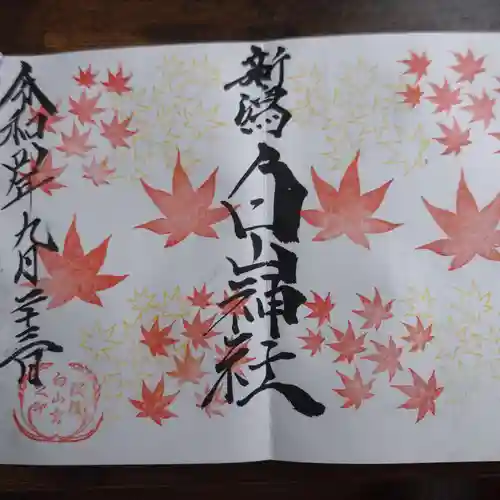 新潟白山神社
令和年九月二十三日
白山宮